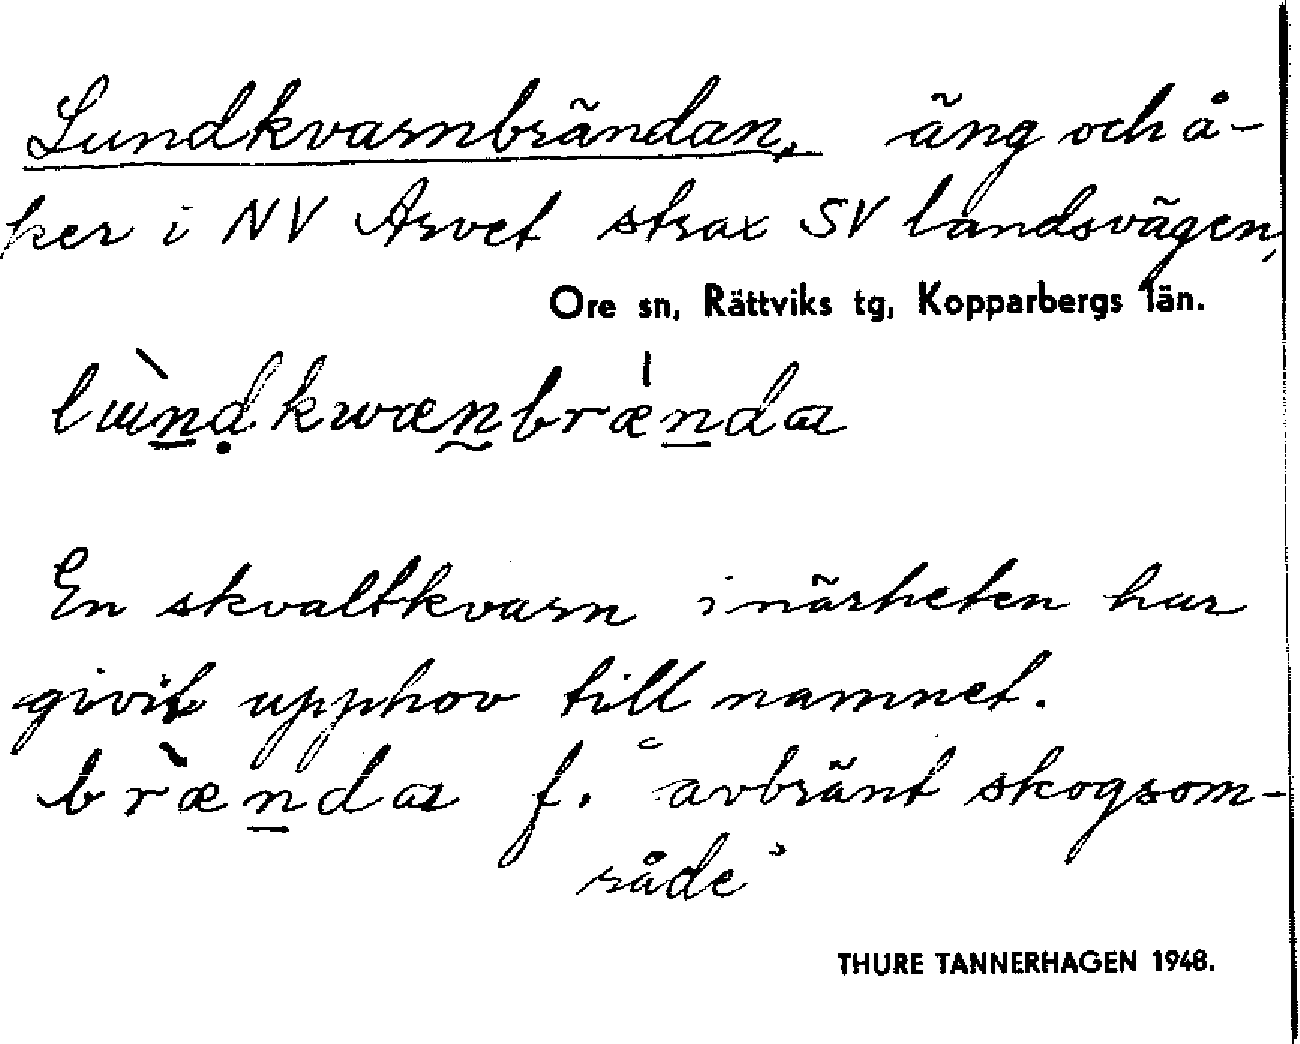 Lundkvarnbrändan, äng och å-
ker i NV Arvet strax SV landsvägen,
Ore sn, Rättviks tg, Kopparbergs län.
lɯ̀n̲ḍkwæn̰bræ̍n̲da
En skvaltkvarn i närheten har
givit upphov till namnet.
bræ̀n̲da f. "avbränt skogsom-
råde"
THURE TANNERHAGEN 1948.